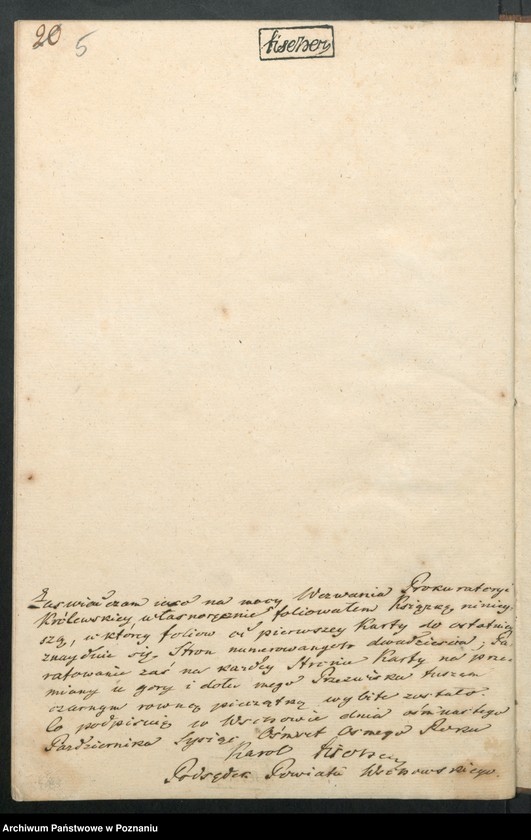 20 5
fischer
Zaświadczam iako na mocy Wezwania Prokuratoryi
Królewskiey, własnoręcznie foliowałem Książkę niniey-
szą, w którey foliow od pierwszey Karty do ostatniey
znayduie się Stron numerowanych dwadzieścia, Pa-
rafowanie zaś na każdey Stronie Karty na prze-
miany u gory i dołu mego Przezwiska tuszem
czarnym rowną pieczątką wybite zostało.
Co podpisuię w Wschowie dnia ośmnastego
Października Tysiąc Ośmset Osmego Roku
Karol fischer
Podsędek Powiatu Wschowskiego.
Archiwum Państwowe w Poznaniu